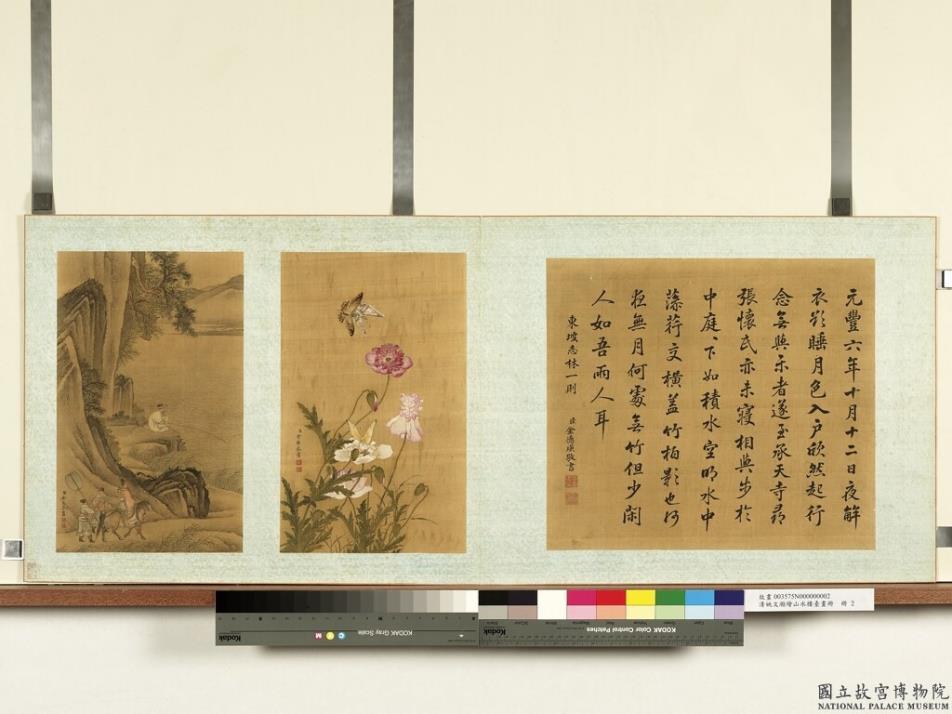 元豐六年十月十二日夜解
衣欲睡月色入户欣然起行
念無與樂者遂至承天寺尋
張懷民亦未寢相與步於
中庭〻下如積水空明水中
藻荇交橫蓋竹柏影也何
夜無月何處無竹但少閑
人如吾兩人耳
東坡志林一則
臣金德瑛敬書
故畫 003575N000000002
清姚文瀚繪山水樓臺畫冊 冊 2
KODAK Gray Scale
Kodak
C
Y
M
KODAK Color Control Patches
Kodak
國立故宮博物院
NATIONAL PALACE MUSEUM